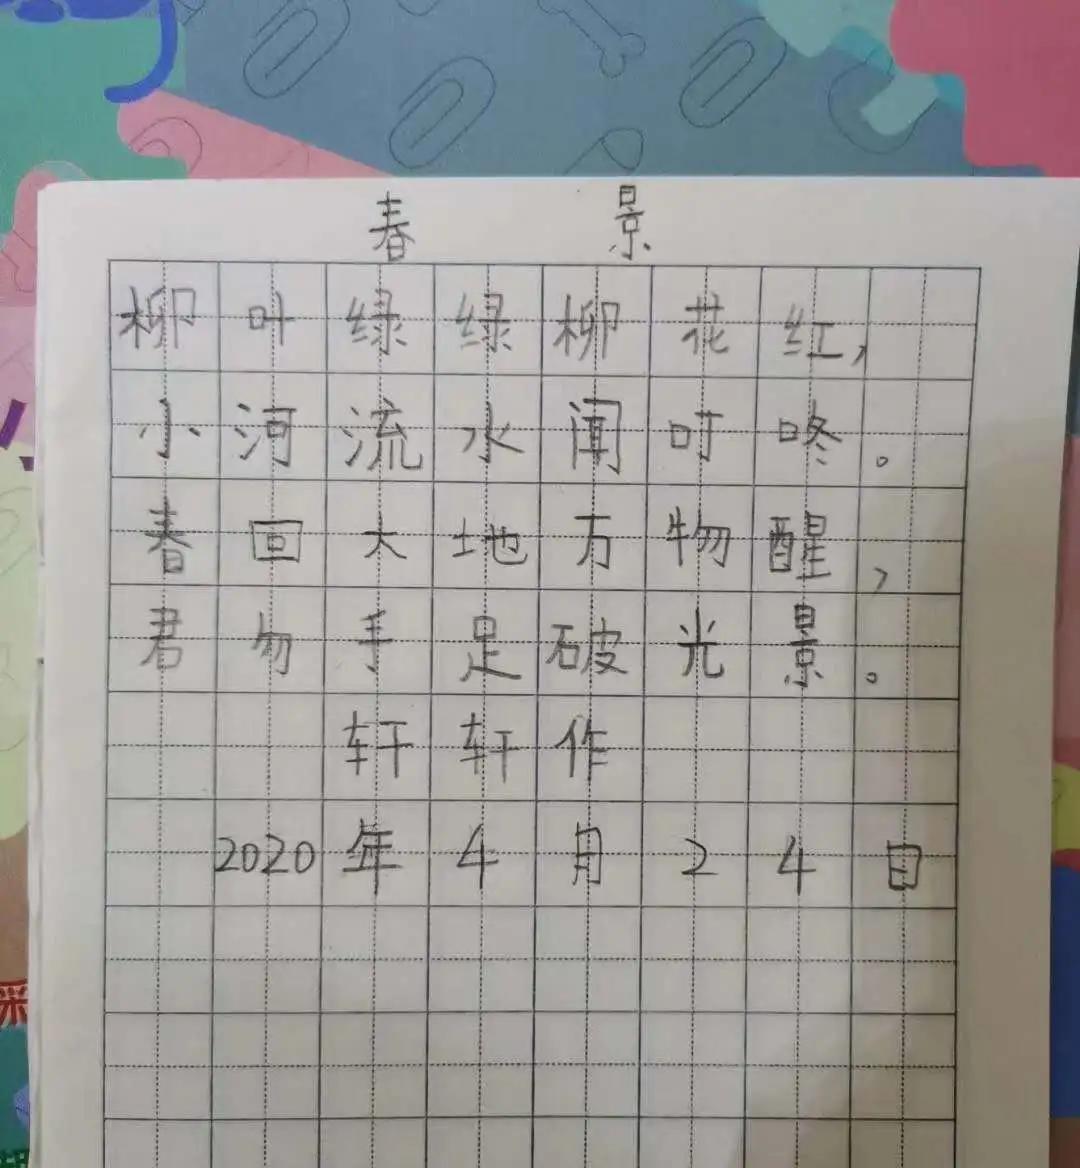 春景
柳叶绿绿柳花红，
小河流水闻叮咚。
春回大地万物醒，
君勿手足破光景。
轩轩作
2020年4月24日